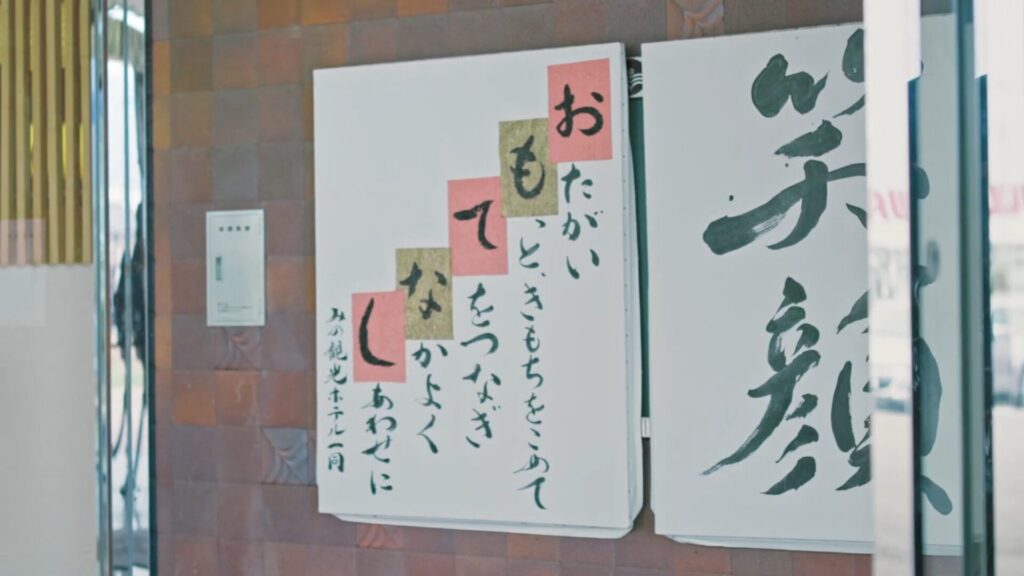 おたがい
もっと、きもちをこめて
てをつなぎ
なかよく
しあわせに
みの観光ホテル一同
笑顔